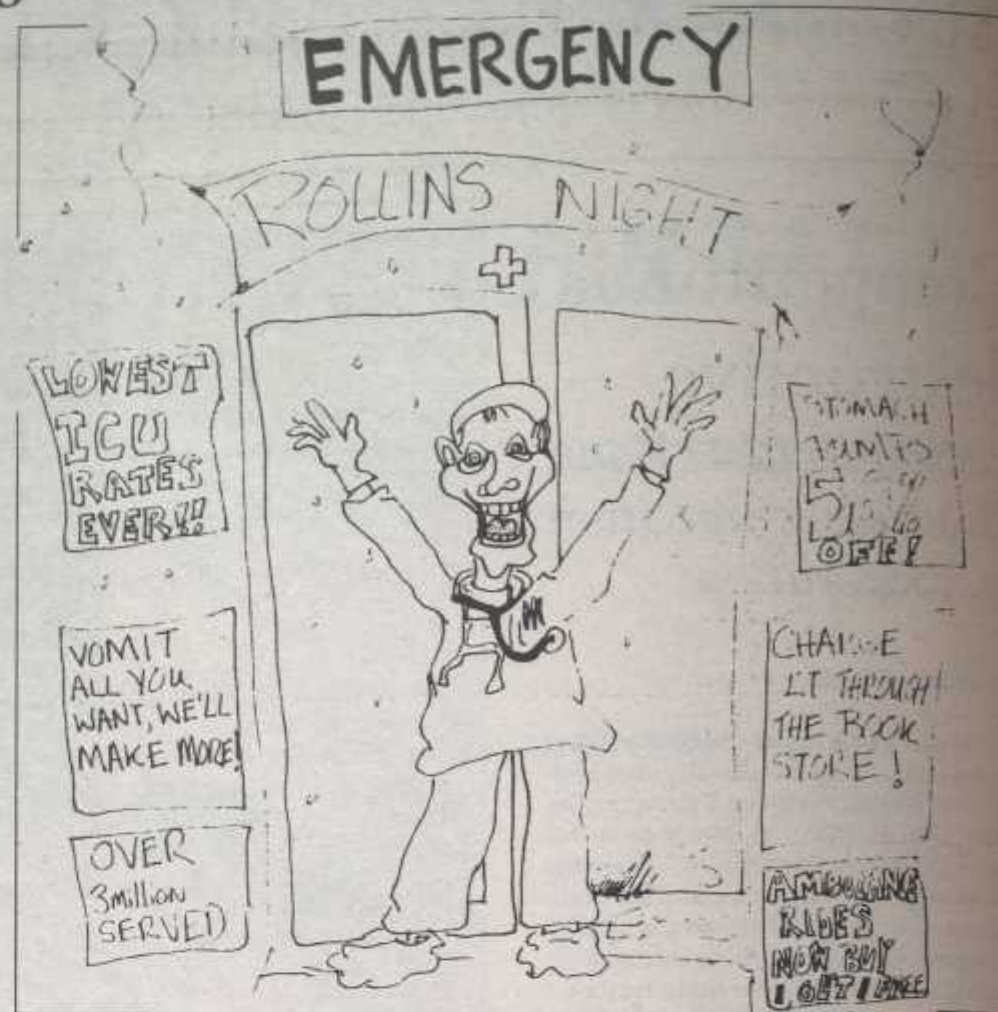 EMERGENCY
ROLLINS NIGHT
LOWEST
ICU
RATES
EVER!!
VOMIT
ALL YOU
WANT, WE'LL
MAKE MORE!
OVER
3 million
SERVED
STOMACH
OFF!
CHARGE
IT THROUGH
THE BOOK
STORE!
AMBULANCE
RIDES
NOW BUY
1 GET 1 FREE